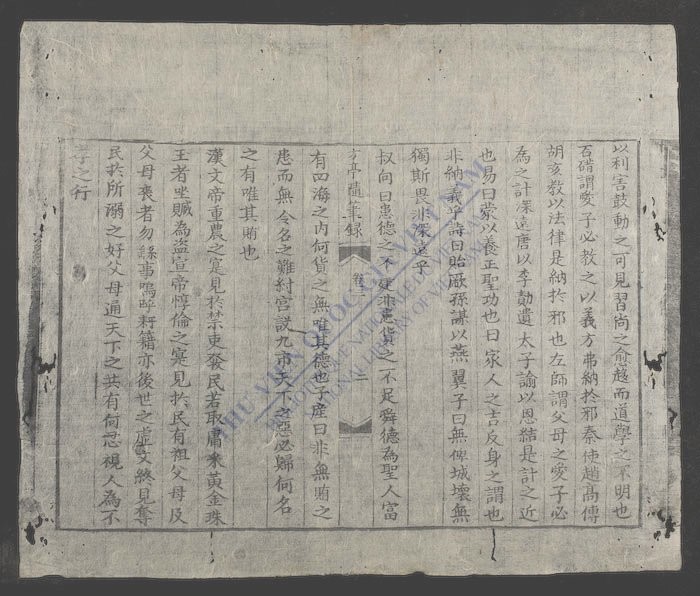 以利害鼓動之可見習尚之愈越而道學之不明也
石碏謂愛子必教之以義方弗納於邪秦使趙高傅
胡亥教以法律是納於邪也左師謂父母之愛子必
為之計深遠唐以李勣遺太子諭以恩結是計之近
也易曰蒙以養正聖功也曰家人之吉反身之謂也
非納義乎詩曰貽厥孫謀以燕翼子曰無俾城壞無
獨斯畏非深遠乎
叔向曰患德之不建非患貨之不足舜德為聖人富
方亭隨筆錄 卷二 二
有四海之内何貨之無唯其德也子産曰非無賄之
患而無令名之難紂宮設九市天下之惡必歸何名
之有唯其賄也
漢文帝重農之寔見於禁吏發民若取庸釆黃金珠
玉者坐贓為盜宣帝惇倫之寔見於民有祖父母及
父母喪者勿繇事嗚呼耤籍亦後世之虛文終見奪
民於所溺之好父母通天下之共有何忍視人為不
孝之行
THƯ VIỆN QUỐC GIA VIỆT NAM
BIBLIOTHEQUE NATIONALE DU VIETNAM
NATIONAL LIBRARY OF VIETNAM